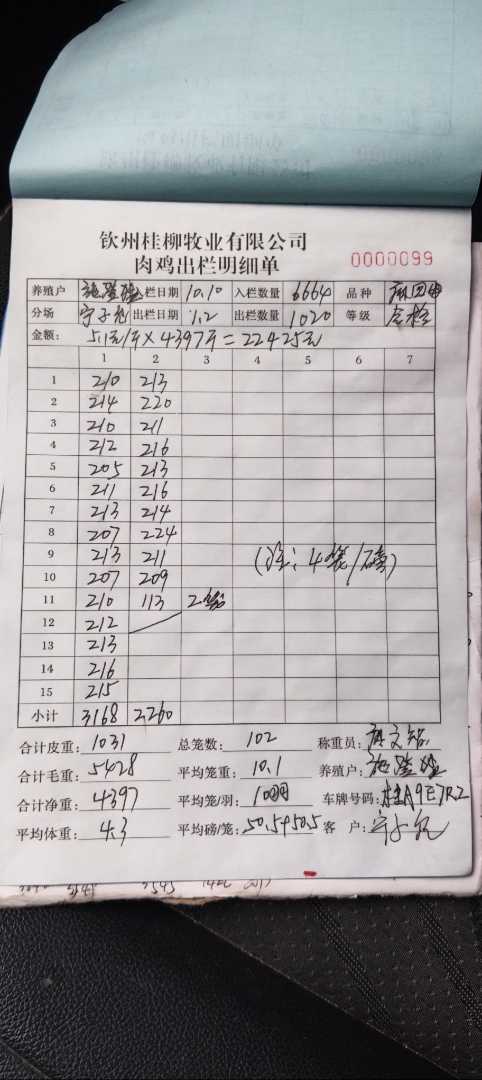 钦州桂柳牧业有限公司
肉鸡出栏明细单 0000099
养殖户 入栏日期 10.10 入栏数量 6664 品种
分场 出栏日期 1.2 出栏数量 1020 等级 合格
金额: 5.1元/斤×4397斤=22425元
1 2 3 4 5 6 7
1 210 213
2 214 220
3 210 211
4 212 216
5 205 213
6 211 216
7 213 214
8 207 224
9 213 211 (注:4笼/磅)
10 207 209
11 210 113 2笼
12 212
13 213
14 216
15 215
小计 3168 2260
合计皮重: 1031 总笼数: 102 称重员:
合计毛重: 5428 平均笼重: 10.1 养殖户:
合计净重: 4397 平均笼/羽: 10羽 车牌号码: 桂A9E7R2
平均体重: 4.3 平均磅/笼: 客 户: